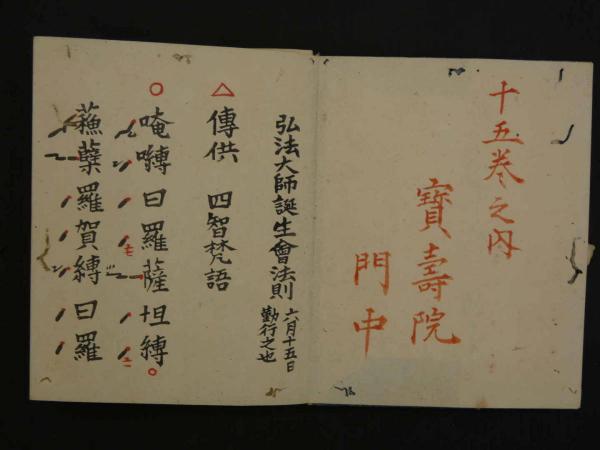 十五巻之内
寳壽院
門中
弘法大師誕生會法則 六月十五日
勤行之也
△ 傳供 四智梵語
○ 唵嚩日羅薩怛縛○
蘓蘖羅賀縛日羅